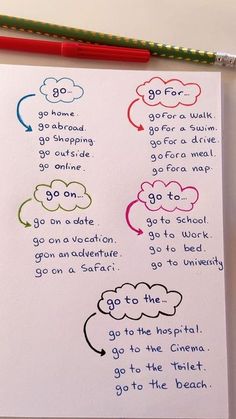 go...
go home.
go abroad.
go Shopping.
go outside.
go online.
go For...
go For a Walk.
go For a Swim.
go for a drive.
go for a meal.
go for a nap.
go on...
go on a date.
go on a vocation.
go on an adventure.
go on a Safari.
go to...
go to School.
go to Work.
go to bed.
go to University
go to the...
go to the hospital.
go to the Cinema.
go to the Toilet.
go to the beach.